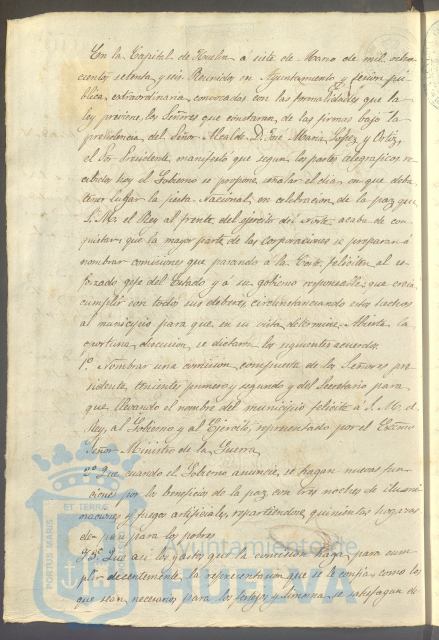 En la Capital de Huelva á siete de Marzo de mil ocho
cientos setenta y seis. Reunidos en Ayuntamiento y sesion pú-
blica extraordinaria, convocada con las formalidades que la
ley previene, los Señores que constaran de las firmas bajo la
presidencia del Señor Alcalde D. José Maria Lopez y Ortiz,
el Sor. Presidente, manifestó que segun los partes telegraficos re-
cibidos hoy el Gobierno se propone, señalar el dia en que deba
tener lugar la fiesta Nacional, en celebracion de la paz que
S. M. el Rey al frente del ejército del Norte acaba de con-
quistar; que la mayor parte de las Corporaciones se preparan á
nombrar comisiones que pasando á la Corte feliciten al es-
forzado gefe del Estado y á su gobierno responsable; que creia
cumplir con todos sus deberes, circunstanciando estos hechos
al municipio para que, en su vista determine. Abierta la
oportuna discusion, se dictaron los siguientes acuerdos.
1º. Nombrar una comision, compuesta de los Señores pre-
sidente, tenientes primero y segundo y del Secretario para
que llevando el nombre del municipio felicite á S. M. el
Rey, al Gobierno y al Ejército, representado por el Excmo
Señor Ministro de la Guerra.
2º. Que cuando el Gobierno anuncie, se hagan nuevas fun-
ciones por los beneficios de la paz con tres noches de ilumi-
naciones y fuegos artificiales, repartiendose quinientas hogazas
de pan para los pobres.
Y 3º. Que asi los gastos que la comision haga para cum-
plir decentemente, la representacion que se le confia, como los
que sean necesarios para los festejos y limosna, se satisfagan de
PORTUS MARIS
ET TERRÆ
Ayuntamiento de
HUELVA